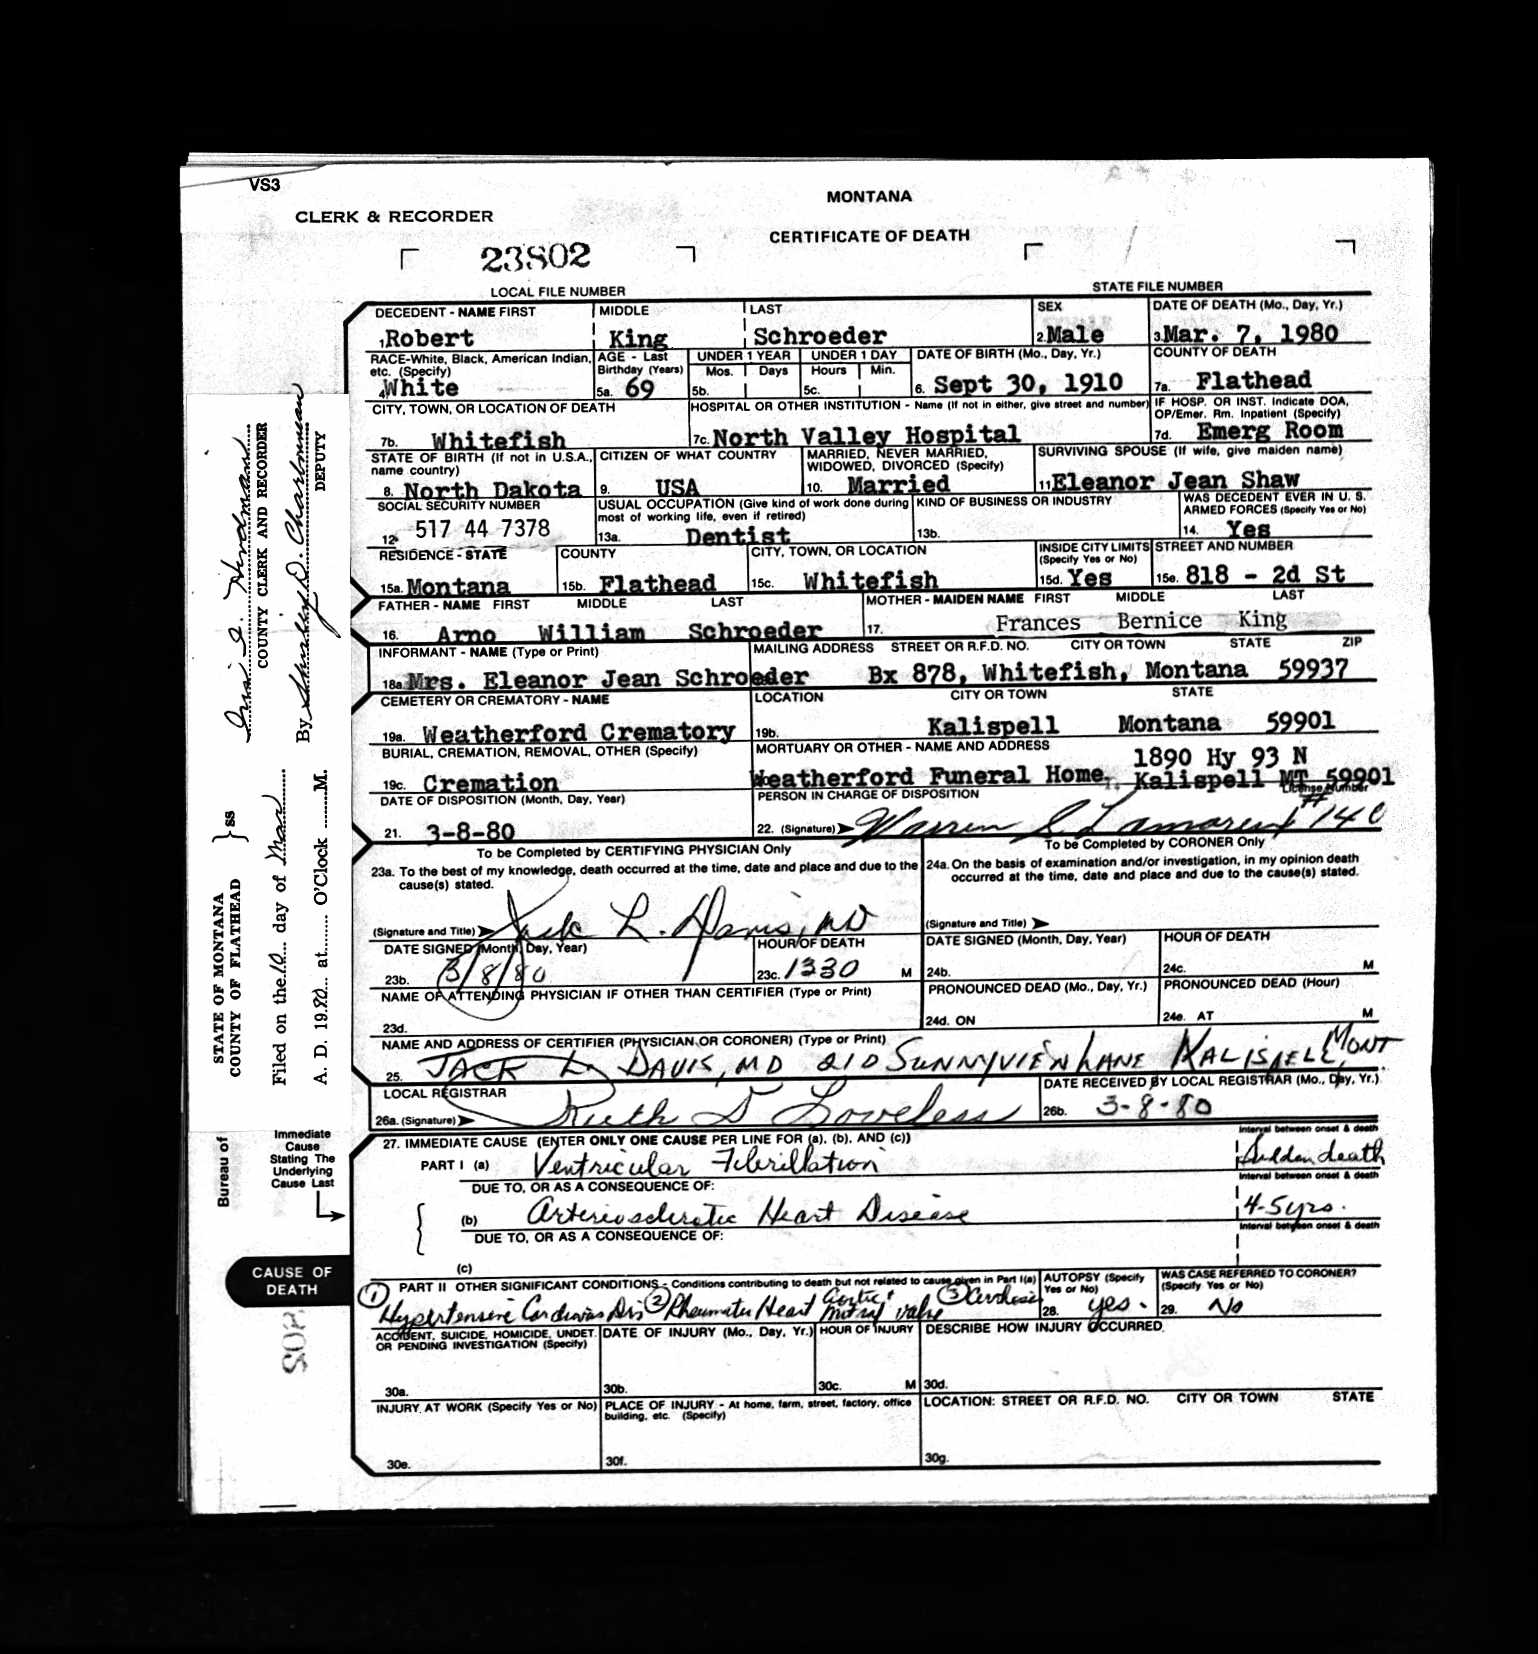 VS3
CLERK & RECORDER
MONTANA
CERTIFICATE OF DEATH
23802
LOCAL FILE NUMBER
STATE FILE NUMBER
DECEDENT - NAME FIRST MIDDLE LAST SEX DATE OF DEATH (Mo., Day, Yr.)
1. Robert King Schroeder 2. Male 3. Mar. 7, 1980
RACE-White, Black, American Indian, etc. (Specify) AGE - Last Birthday (Years) UNDER 1 YEAR UNDER 1 DAY DATE OF BIRTH (Mo., Day, Yr.) COUNTY OF DEATH
Mos. Days Hours Min.
4. White 5a. 69 5b. 5c. 6. Sept 30, 1910 7a. Flathead
CITY, TOWN, OR LOCATION OF DEATH HOSPITAL OR OTHER INSTITUTION - Name (If not in either, give street and number) IF HOSP. OR INST. Indicate DOA, OP/Emer. Rm. Inpatient (Specify)
7b. Whitefish 7c. North Valley Hospital 7d. Emerg Room
STATE OF BIRTH (If not in U.S.A., name country) CITIZEN OF WHAT COUNTRY MARRIED, NEVER MARRIED, WIDOWED, DIVORCED (Specify) SURVIVING SPOUSE (If wife, give maiden name)
8. North Dakota 9. USA 10. Married 11. Eleanor Jean Shaw
SOCIAL SECURITY NUMBER USUAL OCCUPATION (Give kind of work done during most of working life, even if retired) KIND OF BUSINESS OR INDUSTRY WAS DECEDENT EVER IN U. S. ARMED FORCES (Specify Yes or No)
12. 517 44 7378 13a. Dentist 13b. 14. Yes
RESIDENCE - STATE COUNTY CITY, TOWN, OR LOCATION INSIDE CITY LIMITS (Specify Yes or No) STREET AND NUMBER
15a. Montana 15b. Flathead 15c. Whitefish 15d. Yes 15e. 818 - 2d St
FATHER - NAME FIRST MIDDLE LAST MOTHER - MAIDEN NAME FIRST MIDDLE LAST
16. Arno William Schroeder 17. Frances Bernice King
INFORMANT - NAME (Type or Print) MAILING ADDRESS STREET OR R.F.D. NO. CITY OR TOWN STATE ZIP
18a. Mrs. Eleanor Jean Schroeder Bx 878, Whitefish, Montana 59937
CEMETERY OR CREMATORY - NAME LOCATION CITY OR TOWN STATE
19a. Weatherford Crematory 19b. Kalispell Montana 59901
BURIAL, CREMATION, REMOVAL, OTHER (Specify) MORTUARY OR OTHER - NAME AND ADDRESS
1890 Hy 93 N
19c. Cremation Weatherford Funeral Home, Kalispell MT 59901
DATE OF DISPOSITION (Month, Day, Year) PERSON IN CHARGE OF DISPOSITION License Number
21. 3-8-80 22. (Signature) Warren S. #140
To be Completed by CERTIFYING PHYSICIAN Only
To be Completed by CORONER Only
23a. To the best of my knowledge, death occurred at the time, date and place and due to the cause(s) stated.
24a. On the basis of examination and/or investigation, in my opinion death occurred at the time, date and place and due to the cause(s) stated.
(Signature and Title) Jack L. Davis, MD
(Signature and Title)
DATE SIGNED (Month, Day, Year) HOUR OF DEATH DATE SIGNED (Month, Day, Year) HOUR OF DEATH
23b. 3/8/80 23c. 1330 M 24b. 24c. M
NAME OF ATTENDING PHYSICIAN IF OTHER THAN CERTIFIER (Type or Print) PRONOUNCED DEAD (Mo., Day, Yr.) PRONOUNCED DEAD (Hour)
23d. 24d. ON 24e. AT M
NAME AND ADDRESS OF CERTIFIER (PHYSICIAN OR CORONER) (Type or Print)
25. JACK L. DAVIS, MD 210 SUNNYVIEW LANE KALISPELL, MONT
LOCAL REGISTRAR DATE RECEIVED BY LOCAL REGISTRAR (Mo., Day, Yr.)
26a. (Signature) Ruth D Loveless 26b. 3-8-80
27. IMMEDIATE CAUSE (ENTER ONLY ONE CAUSE PER LINE FOR (a), (b), AND (c)) Interval between onset & death
PART I (a) Ventricular Fibrillation Sudden death
DUE TO, OR AS A CONSEQUENCE OF: Interval between onset & death
(b) Arteriosclerotic Heart Disease 4-5 yrs.
DUE TO, OR AS A CONSEQUENCE OF: Interval between onset & death
(c)
PART II OTHER SIGNIFICANT CONDITIONS - Conditions contributing to death but not related to cause given in Part I(a) AUTOPSY (Specify Yes or No) WAS CASE REFERRED TO CORONER? (Specify Yes or No)
(1) Hypertensive Cardiovas Dis (2) Rheumatic Heart Aortic & mitral valve (3) 28. yes. 29. No
ACCIDENT, SUICIDE, HOMICIDE, UNDET. OR PENDING INVESTIGATION (Specify) DATE OF INJURY (Mo., Day, Yr.) HOUR OF INJURY DESCRIBE HOW INJURY OCCURRED
30a. 30b. 30c. M 30d.
INJURY AT WORK (Specify Yes or No) PLACE OF INJURY - At home, farm, street, factory, office building, etc. (Specify) LOCATION: STREET OR R.F.D. NO. CITY OR TOWN STATE
30e. 30f. 30g.
STATE OF MONTANA
COUNTY OF FLATHEAD } ss
Filed on the 10 day of Mar
A. D. 1980 at O'Clock M.
COUNTY CLERK AND RECORDER
By Shirley D.
DEPUTY
Bureau of
Immediate
Cause
Stating The
Underlying
Cause Last
CAUSE OF
DEATH